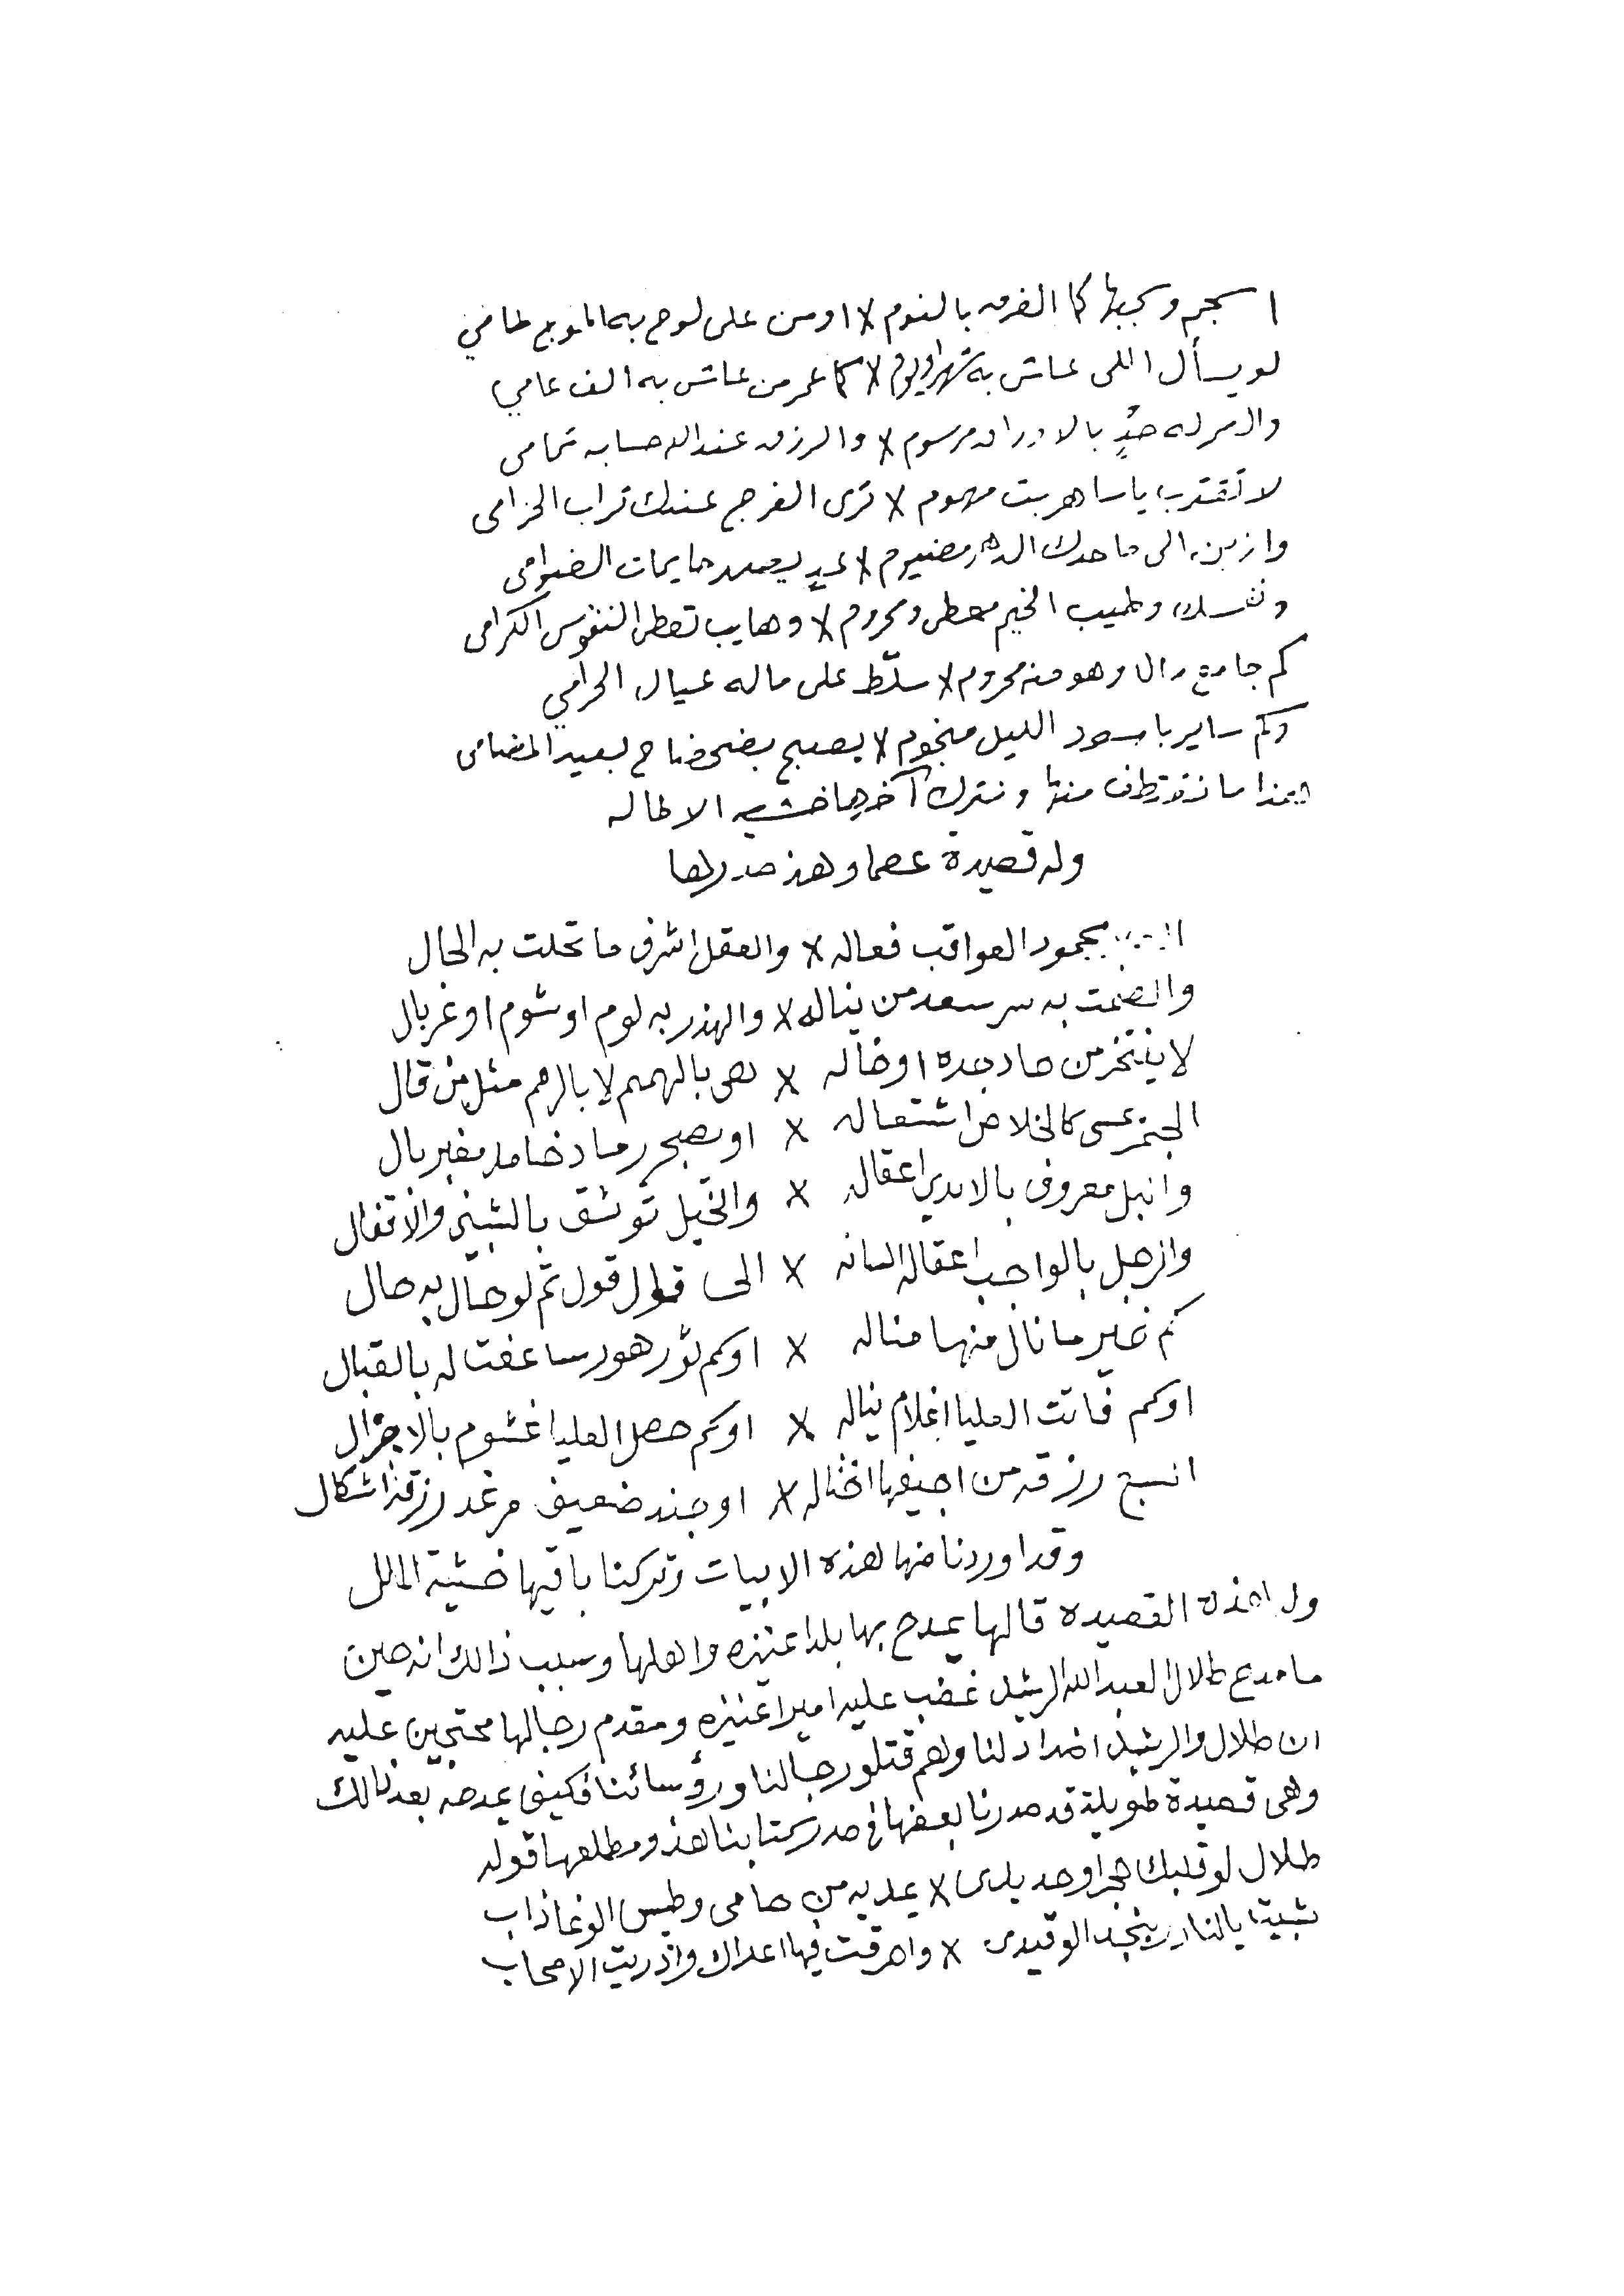 اسجم وسجبها كما الفرق بالنوم × اومن على لوح به الموج طامي
لو يسأل اللى عاش به شهر او يوم × كما عمر من عاش به الف عامي
والمر له حدٍ بالادراك مرسوم × والرزق عند الله حسابه تمامى
لا تقترب ياساهر بت مهموم × ترى الفرج عندك تراب الخزامى
وازبن الى ما حدك الدهر مضيوم × عدٍ يعدد حايمات الضوامى
وطيب الخيم معطى ومحروم × وهايب تعطى النفوس الكرامى
كم جامع مال وهو منه محروم × سلّط على ماله عيال الحرامي
وكم ساير باسود الليل منجوم × يصبح بضحضاح بعيد المضامى
هذا ما نقتطف منها ونترك آخرها خشيه الاطاله
وله قصيدة عصما وهذ صدرها
بحمود العواقب فعاله × والعقل اشرف ما تحلت به الحال
والصمت به سر سعد من يناله × والهذر به لوم او شوم او غربال
لا يفتخر من جاد جده او خاله × هى بالهمم لا بالرمم مثل من قال
الجمر عسى كالخلاص اشتعاله × او يصبح رماد خامد مغبر بال
وانبل معروف بالايدي اعقاله × والخيل توثق بالشبنى والاقفال
وازجل بالواجب اعقاله السانه × الى قال قول ثم لو حال به حال
كم خير ما نال منها مناله × اوكم ثور هور ساعفت له بالقبال
اوكم فاتت العليا اغلام نياله × اوكم حصل العليا غشوم بالاجزال
السبع رزقه من اجيفها اختاله × او جند ضعيف مرغد رزقه اشكال
وقد اوردنا منها هذه الابيات وتركنا باقيها خشية الملل
وله هذه القصيده قالها يمدح بها بلد اعنيزه واهلها وسبب ذالك انه حين
ما مدح طلال العبد الله الرشيد غضب عليه امير اعنيزه ومقدم رجالها محتجين عليه
ان طلال والرشيد اضداد لنا وهم قتلو رجالنا ورؤسائنا فكيف يمدحه بعد ذالك
وهى قصيدة طويلة قد صدرنا بعضها فى صدر كتابنا هذ ومطلعها قوله
طلال لو قلبك حجر او حديدى × يمديه من حامى وطيس الوغا ذاب
شبيت بالنار بنجد الوقيدى × واحرقت فيها اعداك واذريت الاصحاب